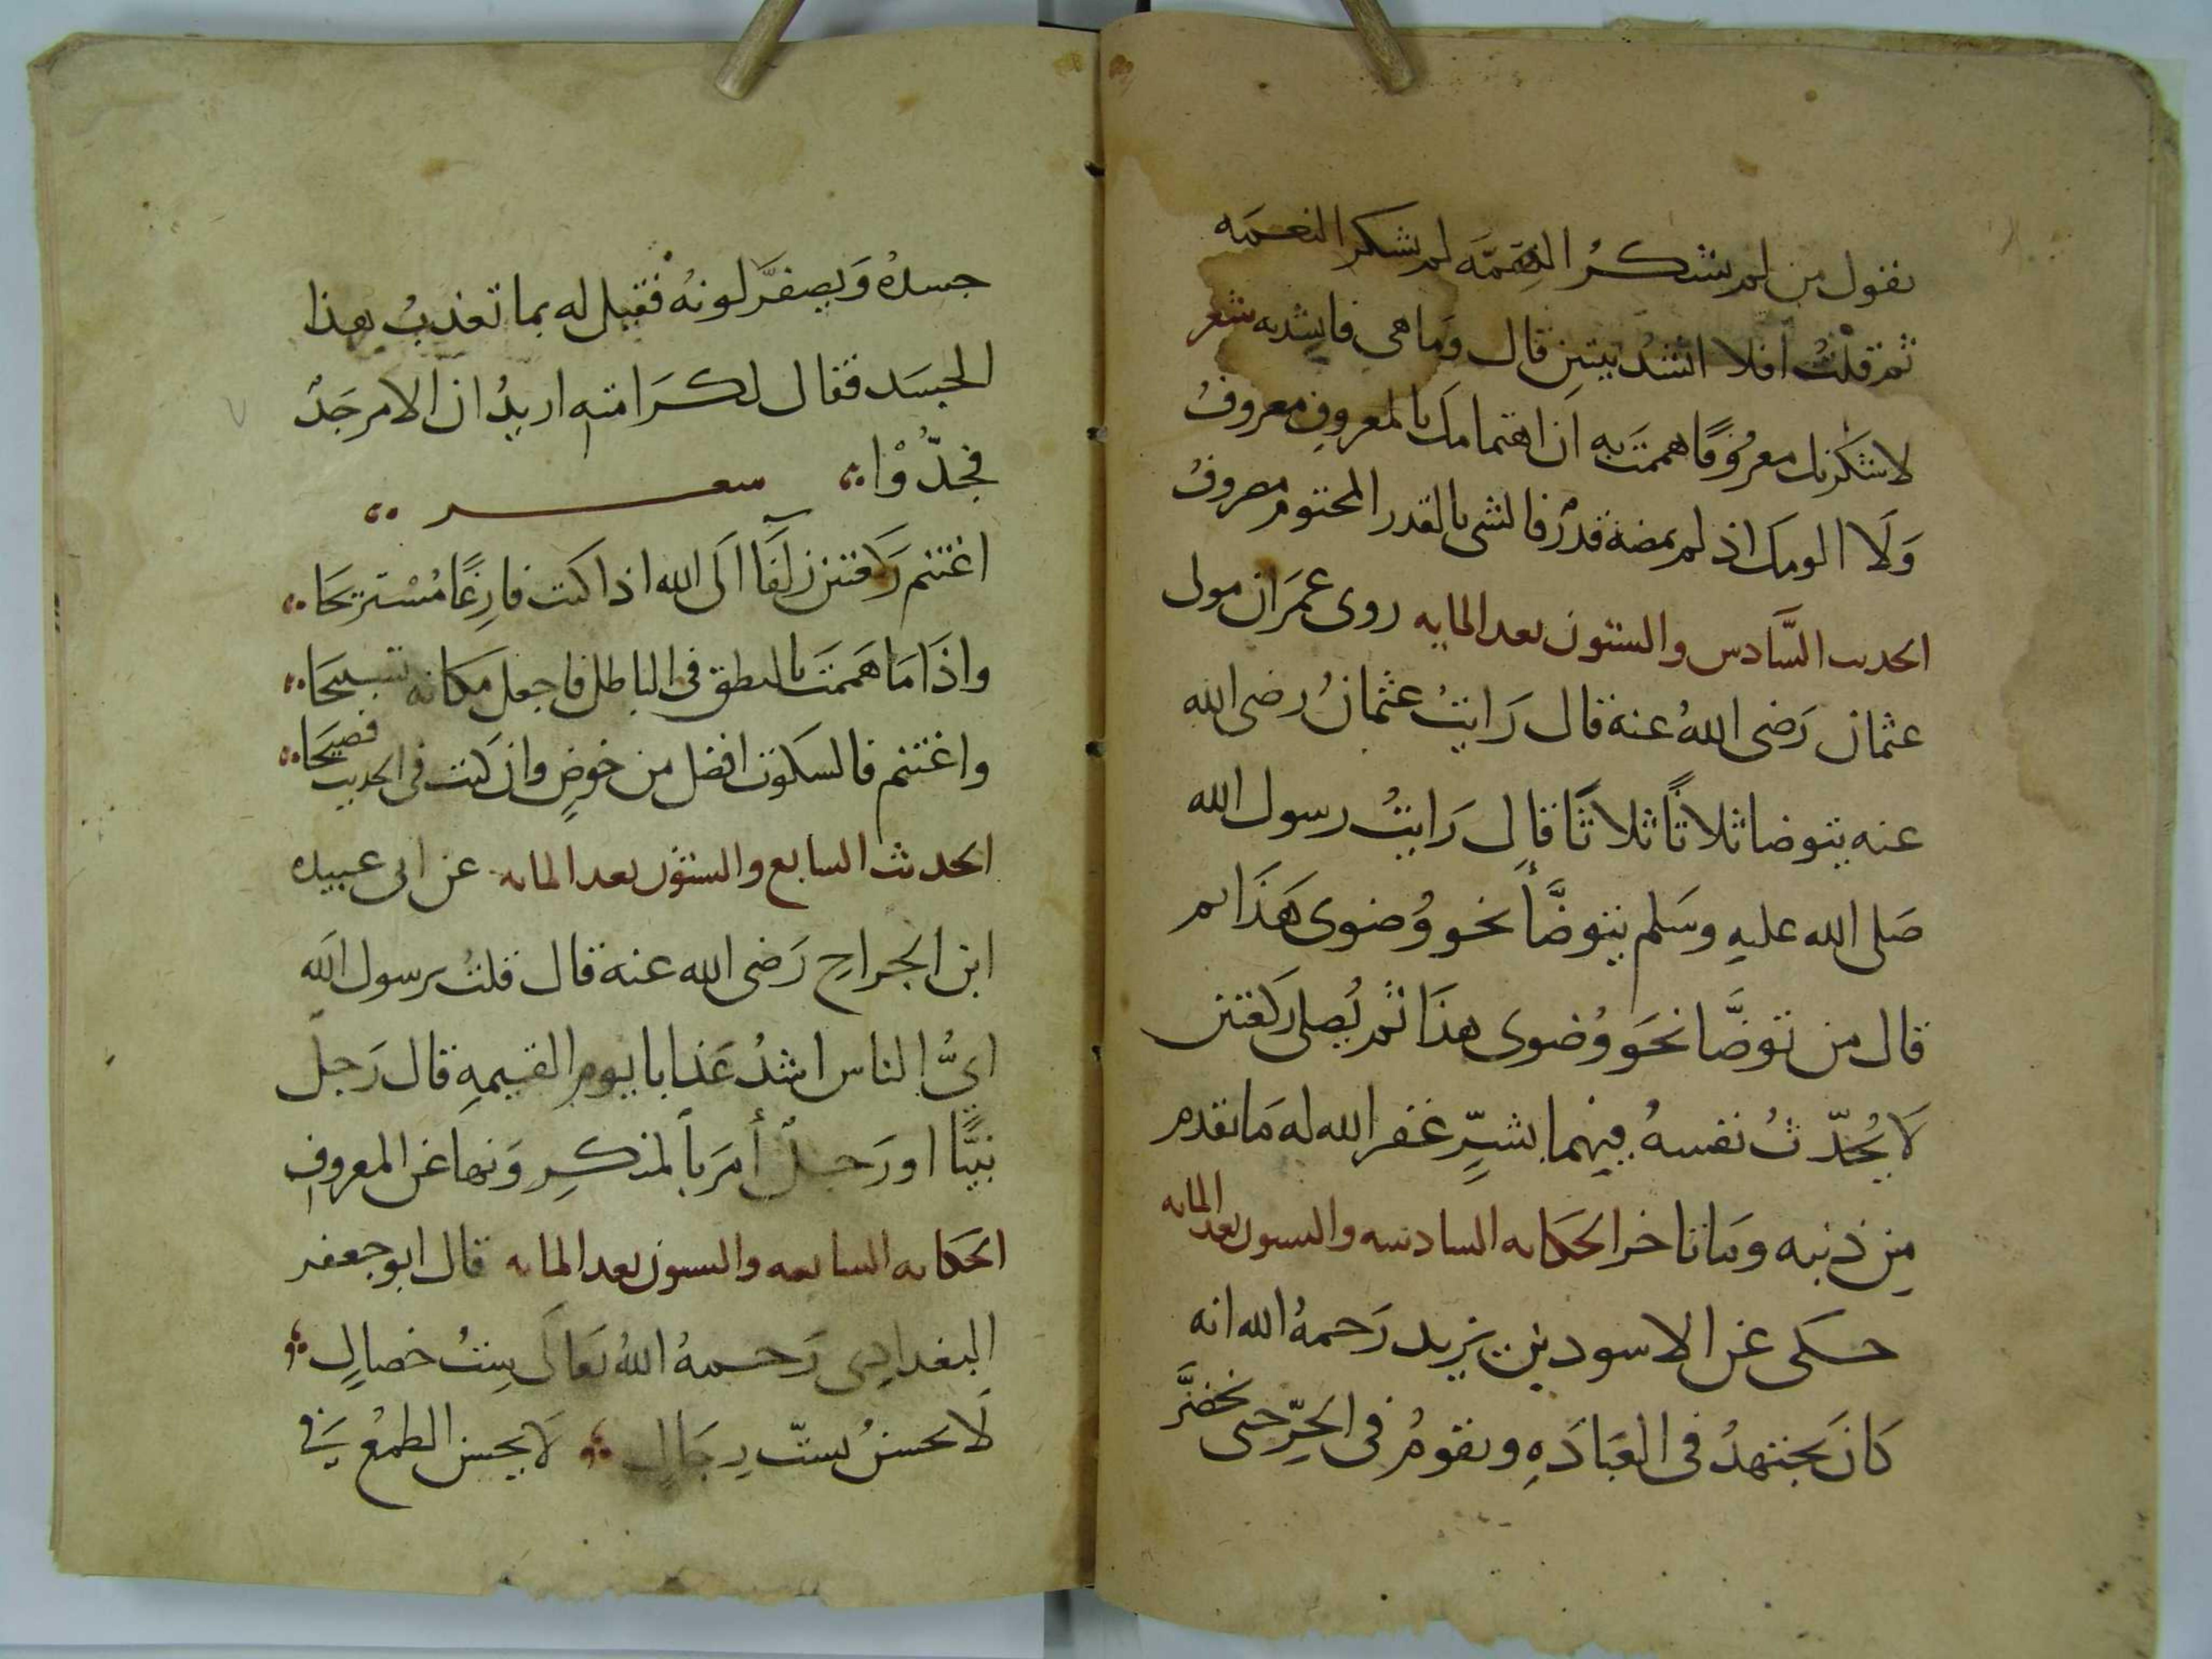 يقول من لم يشكر الهمّه لم يشكر النعمه
ثم قلتُ افلا انشدُ بيتين قال وما هي فانشد به شعر
لاشكرنك معرُوفًا هممتَ به ان اهتمامك بالمعروفِ معروفُ
وَلَا الومك اذ لم يمضه قدرٌ فالشى بالقدر المحتوم مصروفُ
الحديث السَّادس والستون بعد المايه روى عمرَان مولى
عثمان رَضى اللهُ عنه قال رَايتُ عثمانُ رضى الله
عنه يتوضا ثلاثًا ثلاثًا قال رَايتُ رسول الله
صَلى الله عليهِ وسَلم يتوضَّأ نحو وُضوى هَذَا ثم
قال من توضَّا نحَو وُضوى هذَا ثم يُصلى رَكعتين
لَا يُحدّثُ نفسهُ فيهما بشرٍّ غفر الله له مَا تقدم
مِن ذنبه ومَا تاخر الحكَايه السادسه والستون بعد المايه
حكى عن الاسود بن يَزيد رَحمهُ الله انه
كَانَ يجتهدُ فى العبَادَهِ ويقومُ فى الحرِّ حتى يخضرَّ
جسدهُ وَيصفرَّ لونهُ فقيل له بما تعذبُ هذا
الجسَد فقال لكرَامته اريدُ ان الامر جَدٌ
فجدّوْا شعر
اغتنم رَكعتين زلفًا الَى الله اذا كنت فارِغًا مُسْتريحَا
واذَا مَا هَممتَ بالنطق فى الباطل فاجعل مَكانه تسبيحَا
واغتنم فالسكوت افضل من خوضٍ وان كنت فى الحديث فصيحَا
الحديث السابع والستون بعد المايه عن ابى عبيده
ابن الجراحِ رَضى الله عنه قال قلتُ يرسول الله
ايُّ الناس اشدُ عَذابا يوم القيمهِ قال رَجلٌ
نبيًّا او رَجلٌ أمرَ بالمنكرِ وَنها عن المعروفِ
الحكايه السابعه والستون بعد المايه قال ابو جعفر
البغدادى رَحمهُ اللهُ تعَالَى سِتُ خصالٍ
لَا تحسنُ بستّ رِجَالٍ لَا يحسن الطمعُ فى